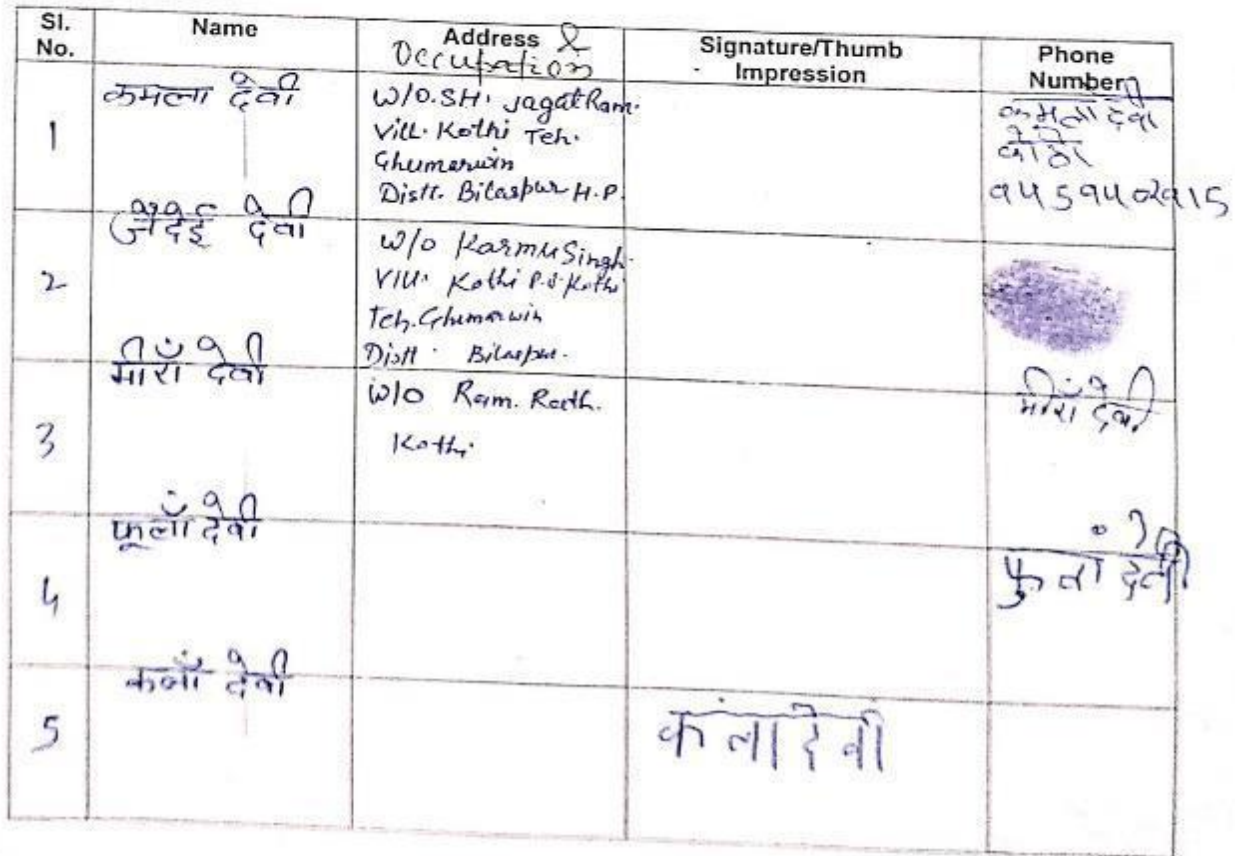 Sl. No. Name Address & Occupation Signature/Thumb Impression Phone Number
1 कमला देवी W/O. SH. Jagat Ram.
Vill. Kothi Teh.
Ghumarwin
Distt. Bilaspur H.P.
कमला देवी
कोठी
2 जैदेई देवी W/o Karmu Singh.
Vill. Kothi P.O Kothi
Teh. Ghumarwin
Distt. Bilaspur.
3 मीराँ देवी W/O Ram. Rath.
Kothi
मीराँ देवी
4 फूलाँ देवी
फुलां देवी
5 कलाँ देवी
कंला देवी